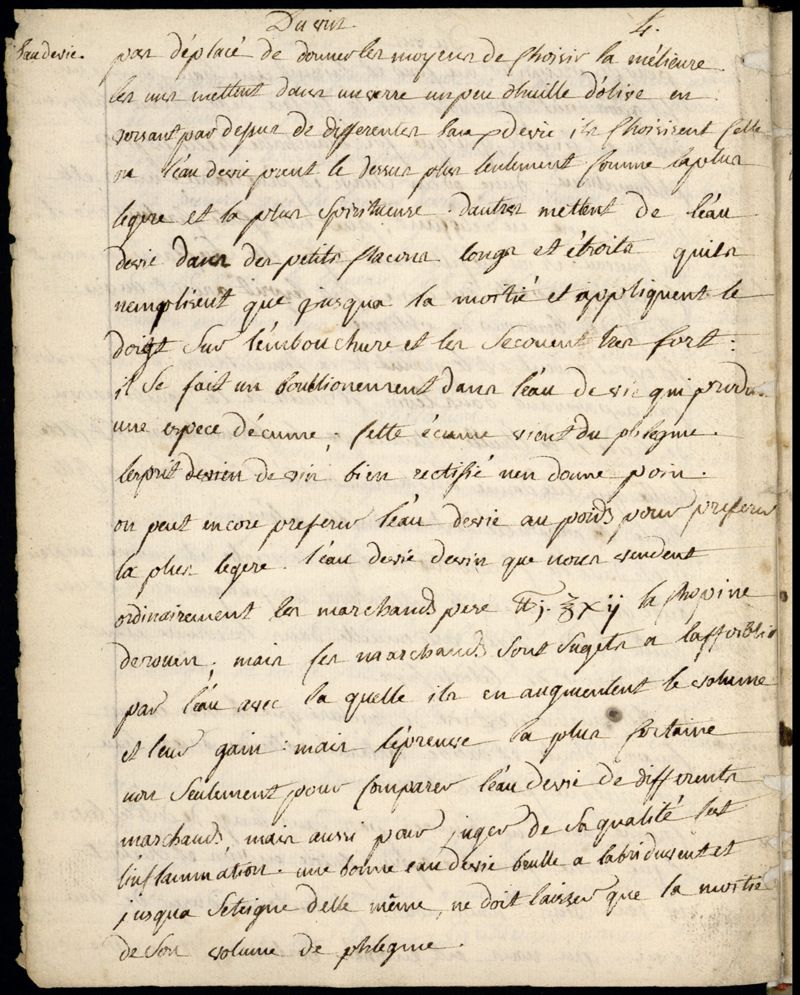 Du vin. 4.
Eau de vie.
pas déplacé de donner les moyens de choisir la mélieure
les uns mettent dans un verre un peu dhuille d'olive en
versant par dessus de differentes eaux de vie ils choisisent celle
ou l'eau de vie prent le dessus plus lentement comme la plus
legere et la plus spiritueuse. dautres mettent de l'éau
devie dans des petits flacons longs et étroits quils
nemplisent que jusqua la moitié et appliquent le
doigt sur l'embouchure et les secouent tres fort:
il se fait un bouillionement dans l'éau de vie qui produit
une espece décume, cette écume vient du phlegme.
lesprit de vin bien rectifié nen donne poin.
on peut encore preferer l'éau devie au poids pour preferer
la plus legere. l'éau devie devin que nous vendent
ordinairement les marchands pese ℔j. ℥xij la chopine
derouen, mais ces marchands sont sugets a laffoiblir
par l'éau avec la quelle ils en augmentent le volume
et leur gain: mais l'épreuve la plus certaine
non seulement pour comparer l'éau devie de differents
marchands, mais aussi pour juger de sa qualité cest
l'inflammation. une bonne eau devie brulle a labri du vent et
jusqua seteigne delle même, ne doit laisser que la moitié
de son volume de phlegme.